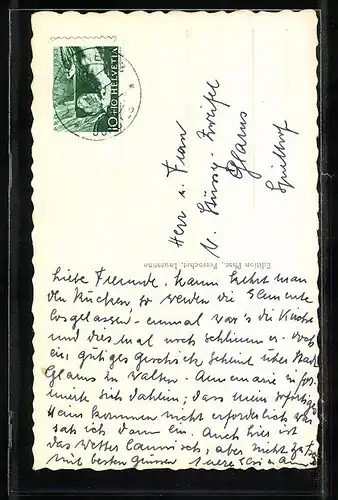 HELVETIA
10+10
Herr u. Frau
Glarus
Spielhof
Edition Phot. Perrochet, Lausanne
Liebe Freunde, kaum kehrt man
den Rücken so werden die Elemente
losgelassen! einmal war's die Küche
und dies mal noch schlimmer. Doch
ein gütiges Geschick scheint über
Glarus zu walten. Annemarie
sich dahin, dass mein sofortiges
Heimkommen nicht erforderlich
sah ich dann ein. Auch hier ist
das Wetter launisch, aber nicht
Mit besten Grüssen